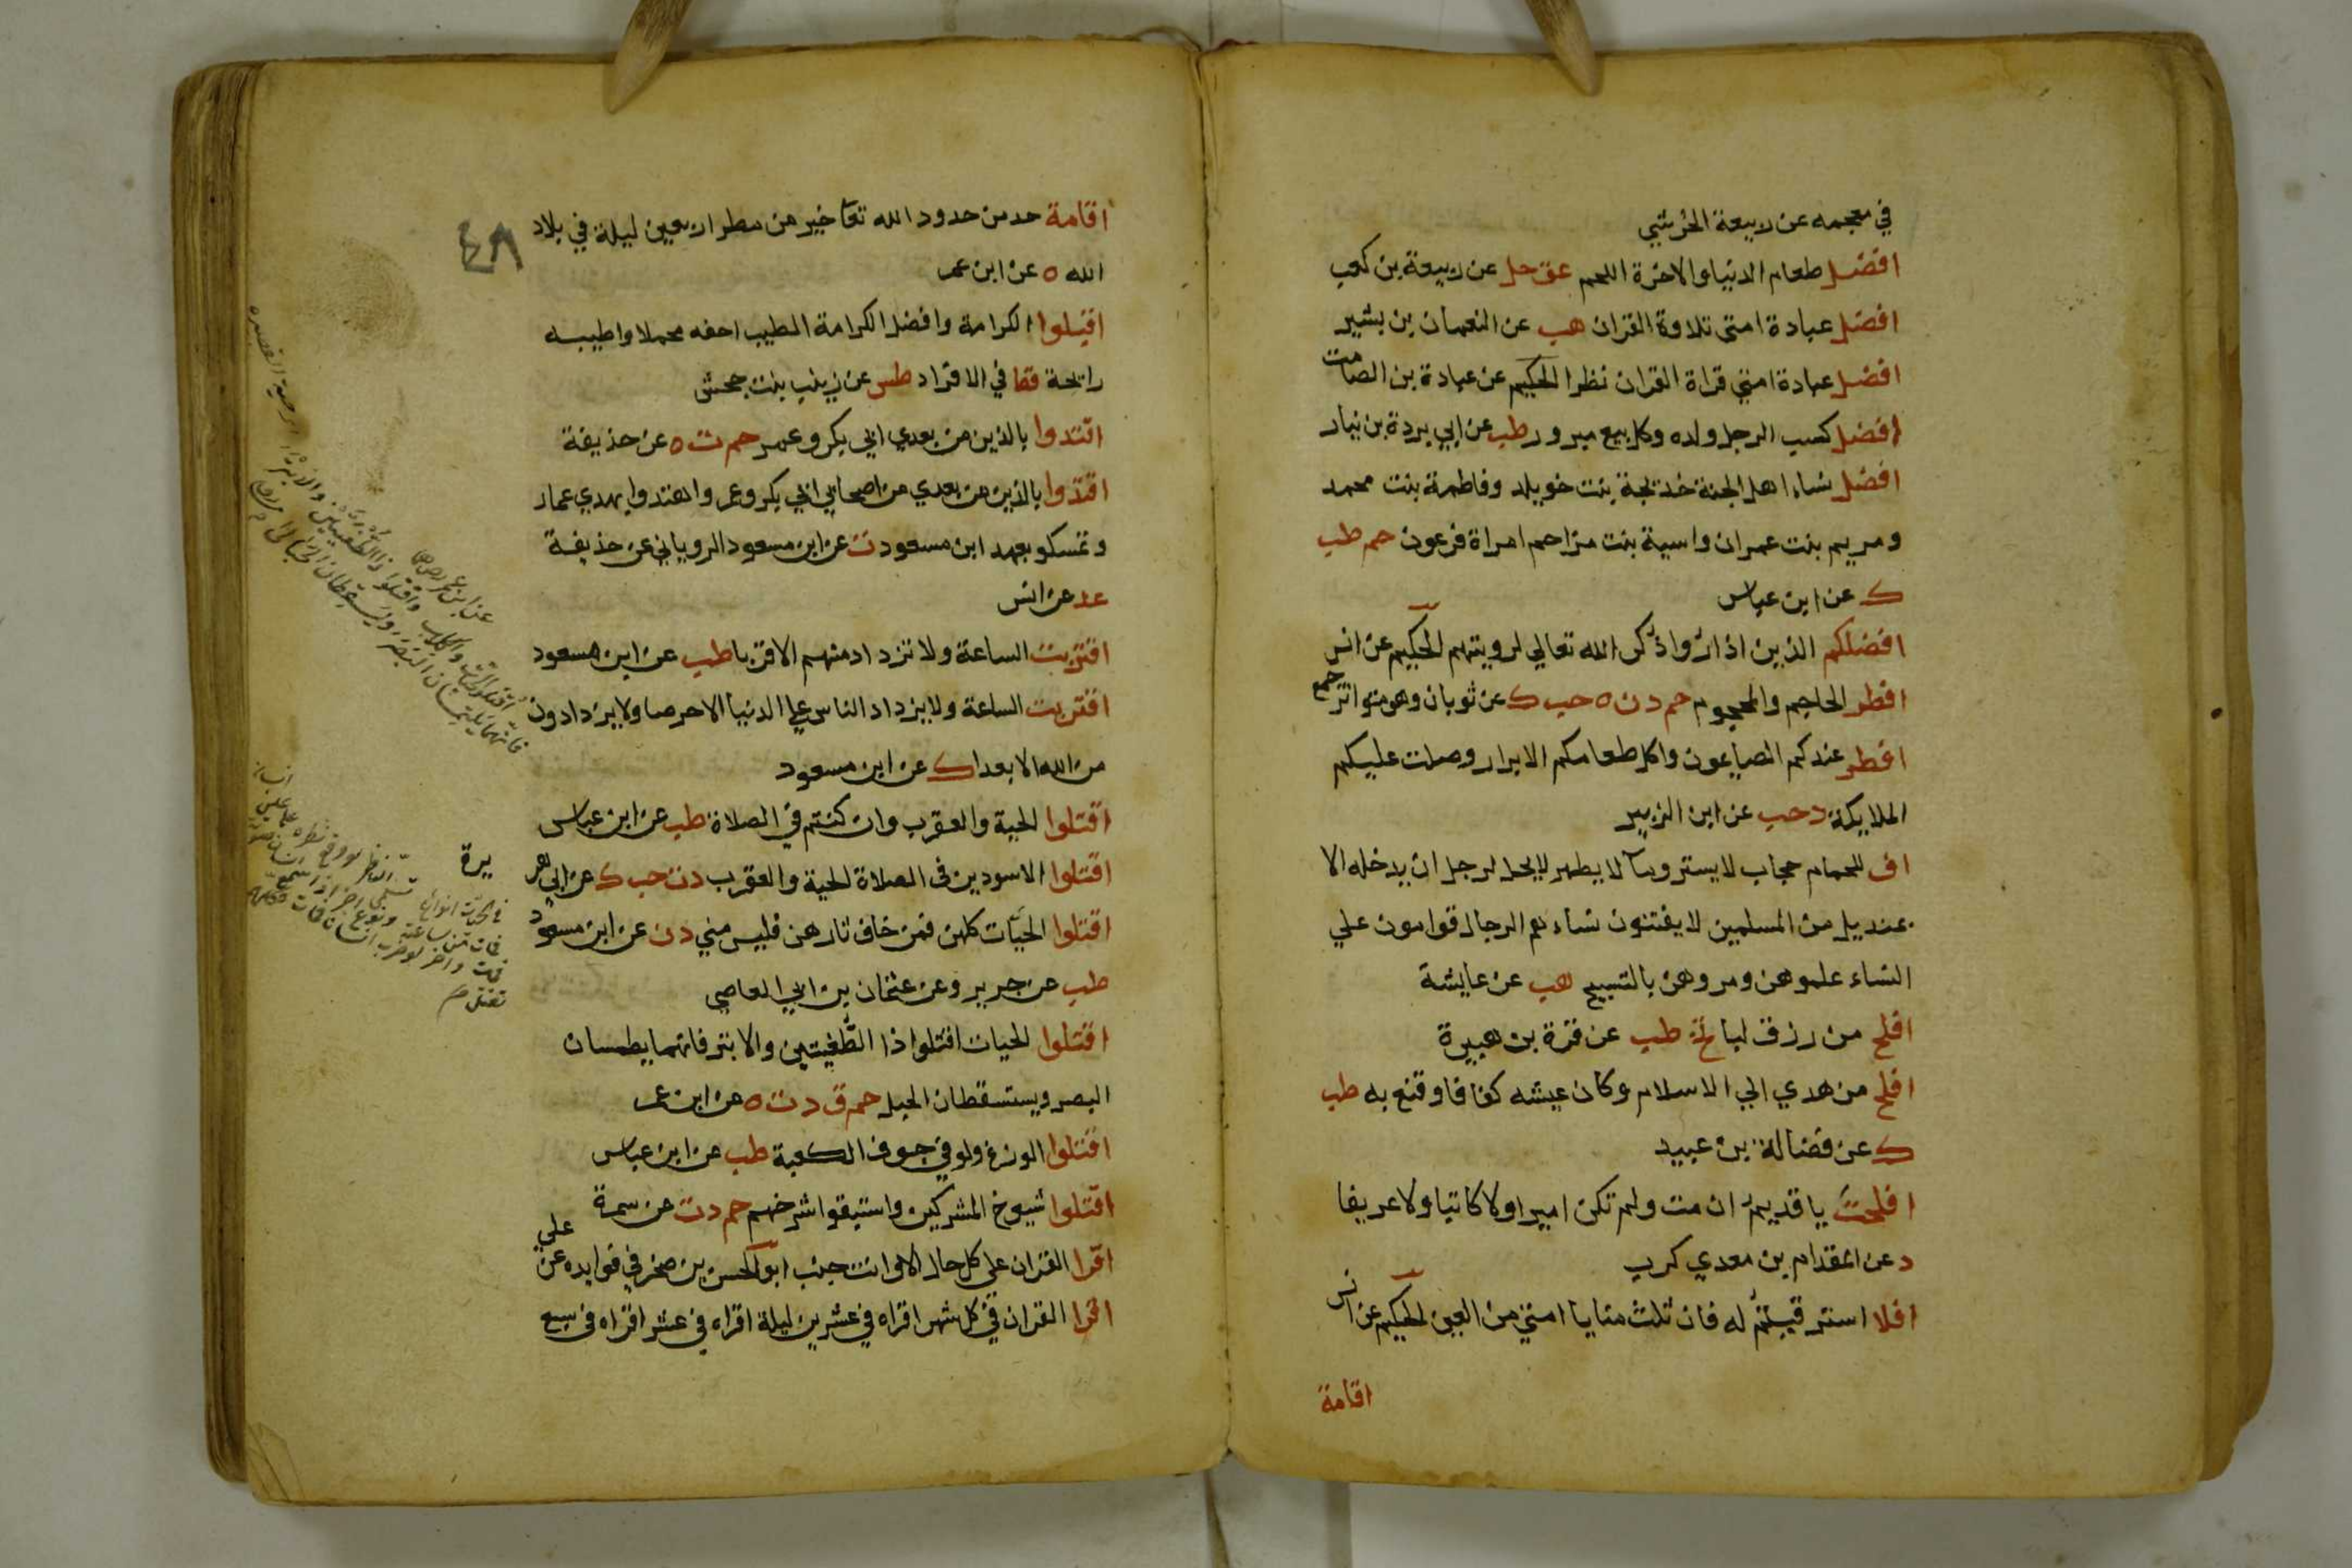 في معجمه عن ربيعة الجرشي
افضل طعام الدنيا والاخرة اللحم عق حل عن ربيعة بن كعب
افضل عبادة امتى تلاوة القران هب عن النعمان بن بشير
افضل عبادة امتي قراة القران نظرا الحكيم عن عبادة بن الصامت
افضل كسب الرجل ولده وكل بيع مبرور طب عن ابي بردة بن نيار
افضل نساء اهل الجنة خديجة بنت خويلد وفاطمة بنت محمد
ومريم بنت عمران واسية بنت مزاحم امراة فرعون حم طب
ك عن ابن عباس
افضلكم الذين اذا رؤا ذكر الله تعالي لرويتهم الحكيم عن انس
افطر الحاجم والمحجوم حم د ن ه حب ك عن ثوبان وهو متواتر
افطر عندكم الصايمون واكل طعامكم الابرار وصلت عليكم
الملايكة د حب عن ابن الزبير
اف للحمام حجاب لا يستر وما لا يطهر لا يحل لرجل ان يدخله الا
بمنديل من المسلمين لا يفتنون نساءهم الرجال قوامون علي
النساء علموهن ومروهن بالتسبيح هب عن عايشة
افلح من رزق لبا تخ طب عن قرة بن هبيرة
افلح من هدي الي الاسلام وكان عيشه كفافا وقنع به طب
ك عن فضالة بن عبيد
افلحت يا قديم ان مت ولم تكن اميرا ولا كاتبا ولا عريفا
د عن المقدام بن معدي كرب
افلا استرقيتم له فان ثلث منايا امتي من العين الحكيم عن انس
اقامة
اقامة حد من حدود الله تعا خير من مطر اربعين ليلة في بلاد
٤٨
الله ه عن ابن عمر
اقبلوا الكرامة وافضل الكرامة الطيب اخفه محملا واطيبه
رايحة قط في الافراد طس عن زينب بنت جحش
اقتدوا بالذين من بعدي ابي بكر وعمر حم ت ه عن حذيفة
اقتدوا بالذين من بعدي من اصحابي ابي بكر وعمر واهتدوا بهدي عمار
وتمسكو بعهد ابن مسعود ت عن ابن مسعود الروياني عن حذيفة
عد عن انس
اقتربت الساعة ولا تزداد منهم الا قربا طب عن ابن مسعود
اقتربت الساعة ولا يزداد الناس علي الدنيا الا حرصا ولا يزدادون
من الله الا بعدا ك عن ابن مسعود
اقتلوا الحية والعقرب وان كنتم في الصلاة طب عن ابن عباس
اقتلوا الاسودين في الصلاة الحية والعقرب د ت حب ك عن ابي هر
يرة
اقتلوا الحيات كلهن فمن خاف ثارهن فليس مني د ن عن ابن مسعود
طب عن جرير وعن عثمان بن ابي العاصي
اقتلوا الحيات اقتلوا ذا الطفيتين والابتر فانهما يطمسان
البصر ويستسقطان الحبل حم ق د ت ه عن ابن عمر
اقتلوا الوزغ ولو في جوف الكعبة طب عن ابن عباس
اقتلوا شيوخ المشركين واستبقوا شرخهم حم د ت عن سمرة
اقرا القران على كل حال الا وانت جنب ابو الحسن بن صخر في فوايده عن علي
اقرا القران في كل شهر اقراه في عشرين ليلة اقراه في عشر اقراه في سبع